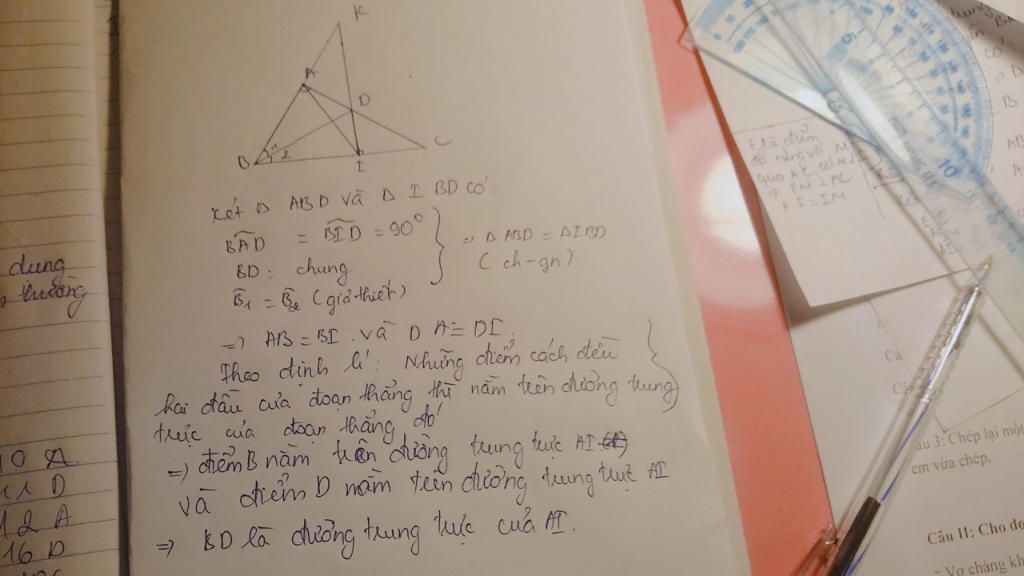 K
A
D
B 1 2
I
C
Xét Δ ABD và Δ IBD có:
BAD = BID = 90°
BD: chung
B1 = B2 (giả thiết)
=> Δ ABD = Δ IBD
(ch-gn)
=> AB = BI. và DA = DI.
Theo định lí: Những điểm cách đều
hai đầu của đoạn thẳng thì nằm trên đường trung
trực của đoạn thẳng đó
=> điểm B nằm trên đường trung trực AI
và điểm D nằm trên đường trung trực AI
=> BD là đường trung trực của AI.
dung
thường
10 A
11 D
12 A
16 D
qua AC
=> FM ⊥ AC
FI = IM
5
10
Câ
3: Chép lại mộ
em vừa chép.
Câu II: Cho đo
Vợ chàng kh